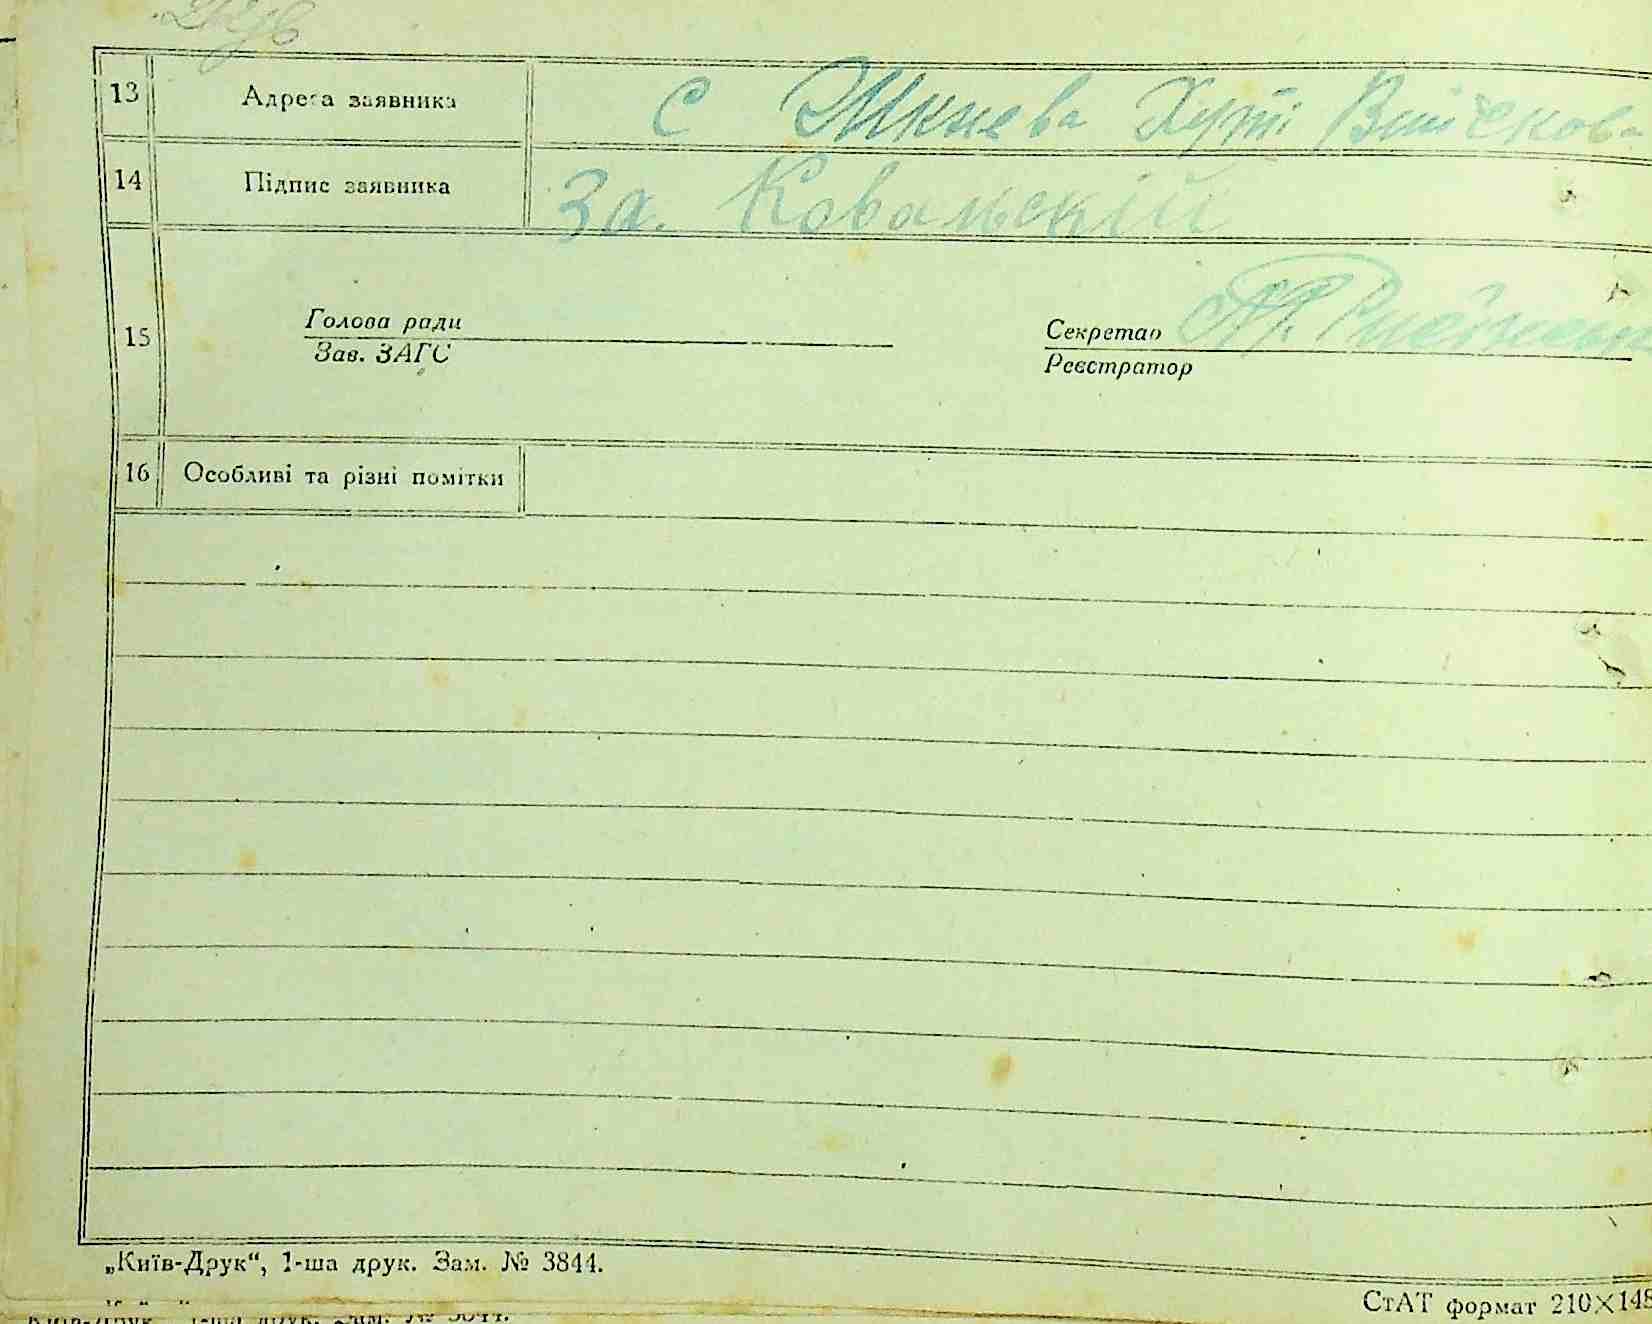 13 Адреса заявника С Жкнева Хут
14 Підпис заявника За. Ковальскій
15
Голова ради
Зав. ЗАГС
Секретар
Реєстратор
16 Особливі та різні помітки
„Київ-Друк“, 1-ша друк. Зам. № 3844.
СтАТ формат 210×148